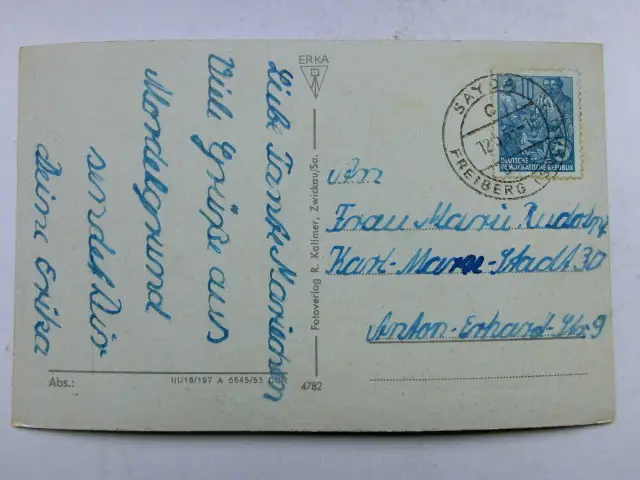 Liebe Tante Mariechen
Viele Grüße aus
Mordelgrund
sendet Dir
Deine Erika
Abs.:
III/18/197 A 6645/53 DDR
4782
ERKA
Fotoverlag R. Kallmer, Zwickau/Sa.
SAYDA
FREIBERG
DEUTSCHE
DEMOKRATISCHE REPUBLIK
An
Frau Marie Rudolph
Karl-Marx-Stadt 30
Anton-Erhard-Str 9